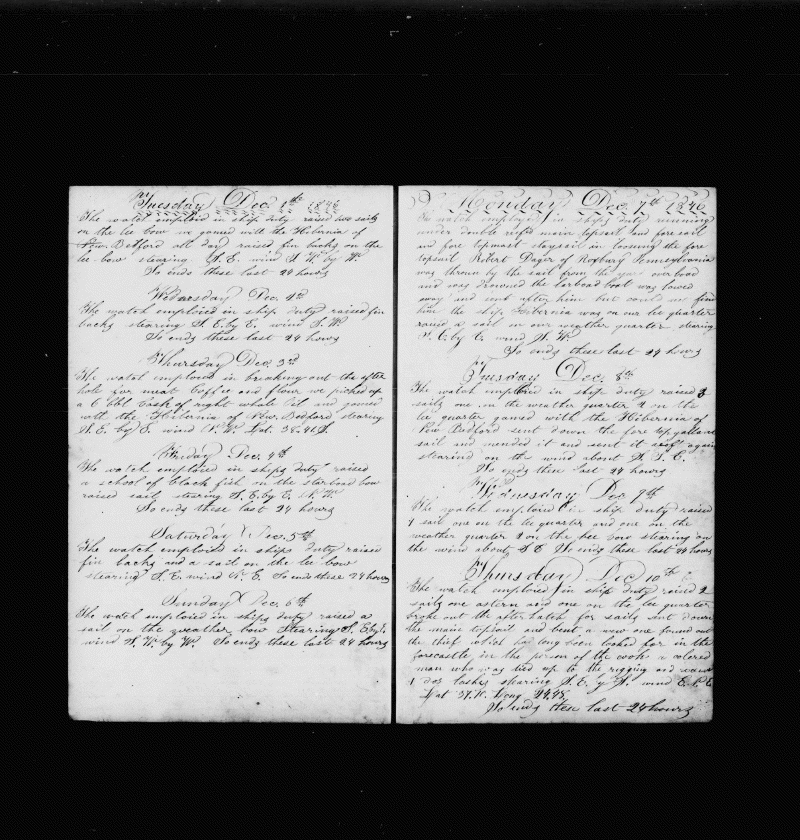 Tuesday Dec. 1th 1846
The watch emploid in ship duty raised two sails
on the lee bow we gamed with the Hibernia of
New Bedford all day raised fin backs on the
lee-bow stearing S. E. wind S. W. by W.
So ends these last 24 hours
Wednesday Dec. 2d
The watch emploied in ship duty raised fin
backs stearing S. E. by E. wind S. W
So ends these last 24 hours
Thursday Dec. 3rd
The watch emploied in breaking out the after
hole for meat Coffee and flour we picked up
a 6 bbl Cask of right whale oil and gamed
with the Hibernia of New Bedford stearing
S. E. by E. wind N. W. Lat. 38.41 S.
Friday Dec. 4th
The watch emploied in ships duty raised
a school of black fish on the starboad bow
raised sail stearing S. E. by E. N. W.
So ends these last 24 hours
Saturday Dec. 5th
The watch emploid in ships duty raised
fin backs and a sail on the lee bow
stearing S. E. wind N. E. So ends these 24 hours
Sunday Dec. 6th
The watch emploied in ships duty raised a
sail on the weather bow Stearing S. E by E.
wind S. W. by W. So ends these last 24 hours
Monday Dec. 7th 1846
The watch employed in ships duty running
under double reefd main topsail and fore sail
and fore topmast staysail in loosing the fore
topsail Robert Dager of Roxbury Pennsylvania
was thrown by the sail from the yard overboad
and was drowned the larboad boat was lowed
away and sent after him but could not find
him the ship Hibernia was on our lee quarter
raised a sail on our weather quarter stearing
S. E. by E. wind S. W.
So ends these last 24 hours
Tuesday Dec. 8th
The watch emploied in ship duty raised 2
sails one on the weather quarter 1 on the
lee quarter gamed with the Hibernia of
New Bedford sent down the fore topgallant
sail and mended it and sent it again
stearing on the wind about S. S. E.
So ends these last 24 hours
Wednesday Dec 9th
The watch emploied in ship duty raised
sail one on the lee quarter and one on the
weather quarter 1 on the lee bow stearing on
the wind about S E So ends these last 24 hours
Thursday Dec 10th
The watch employed in ship duty raised 2
sails one astern and one on the lee quarter
broke out the after hatch for sails sent down
the main topsail and bent a new one found out
the thief which has long been looked for in the
forecastle in the person of the cook a colored
man who was tied up to the rigging and
1 dos lashes stearing S. E. by S. wind E. N E
Lat 37.11. Long 24.48
So ends these last 24 hours